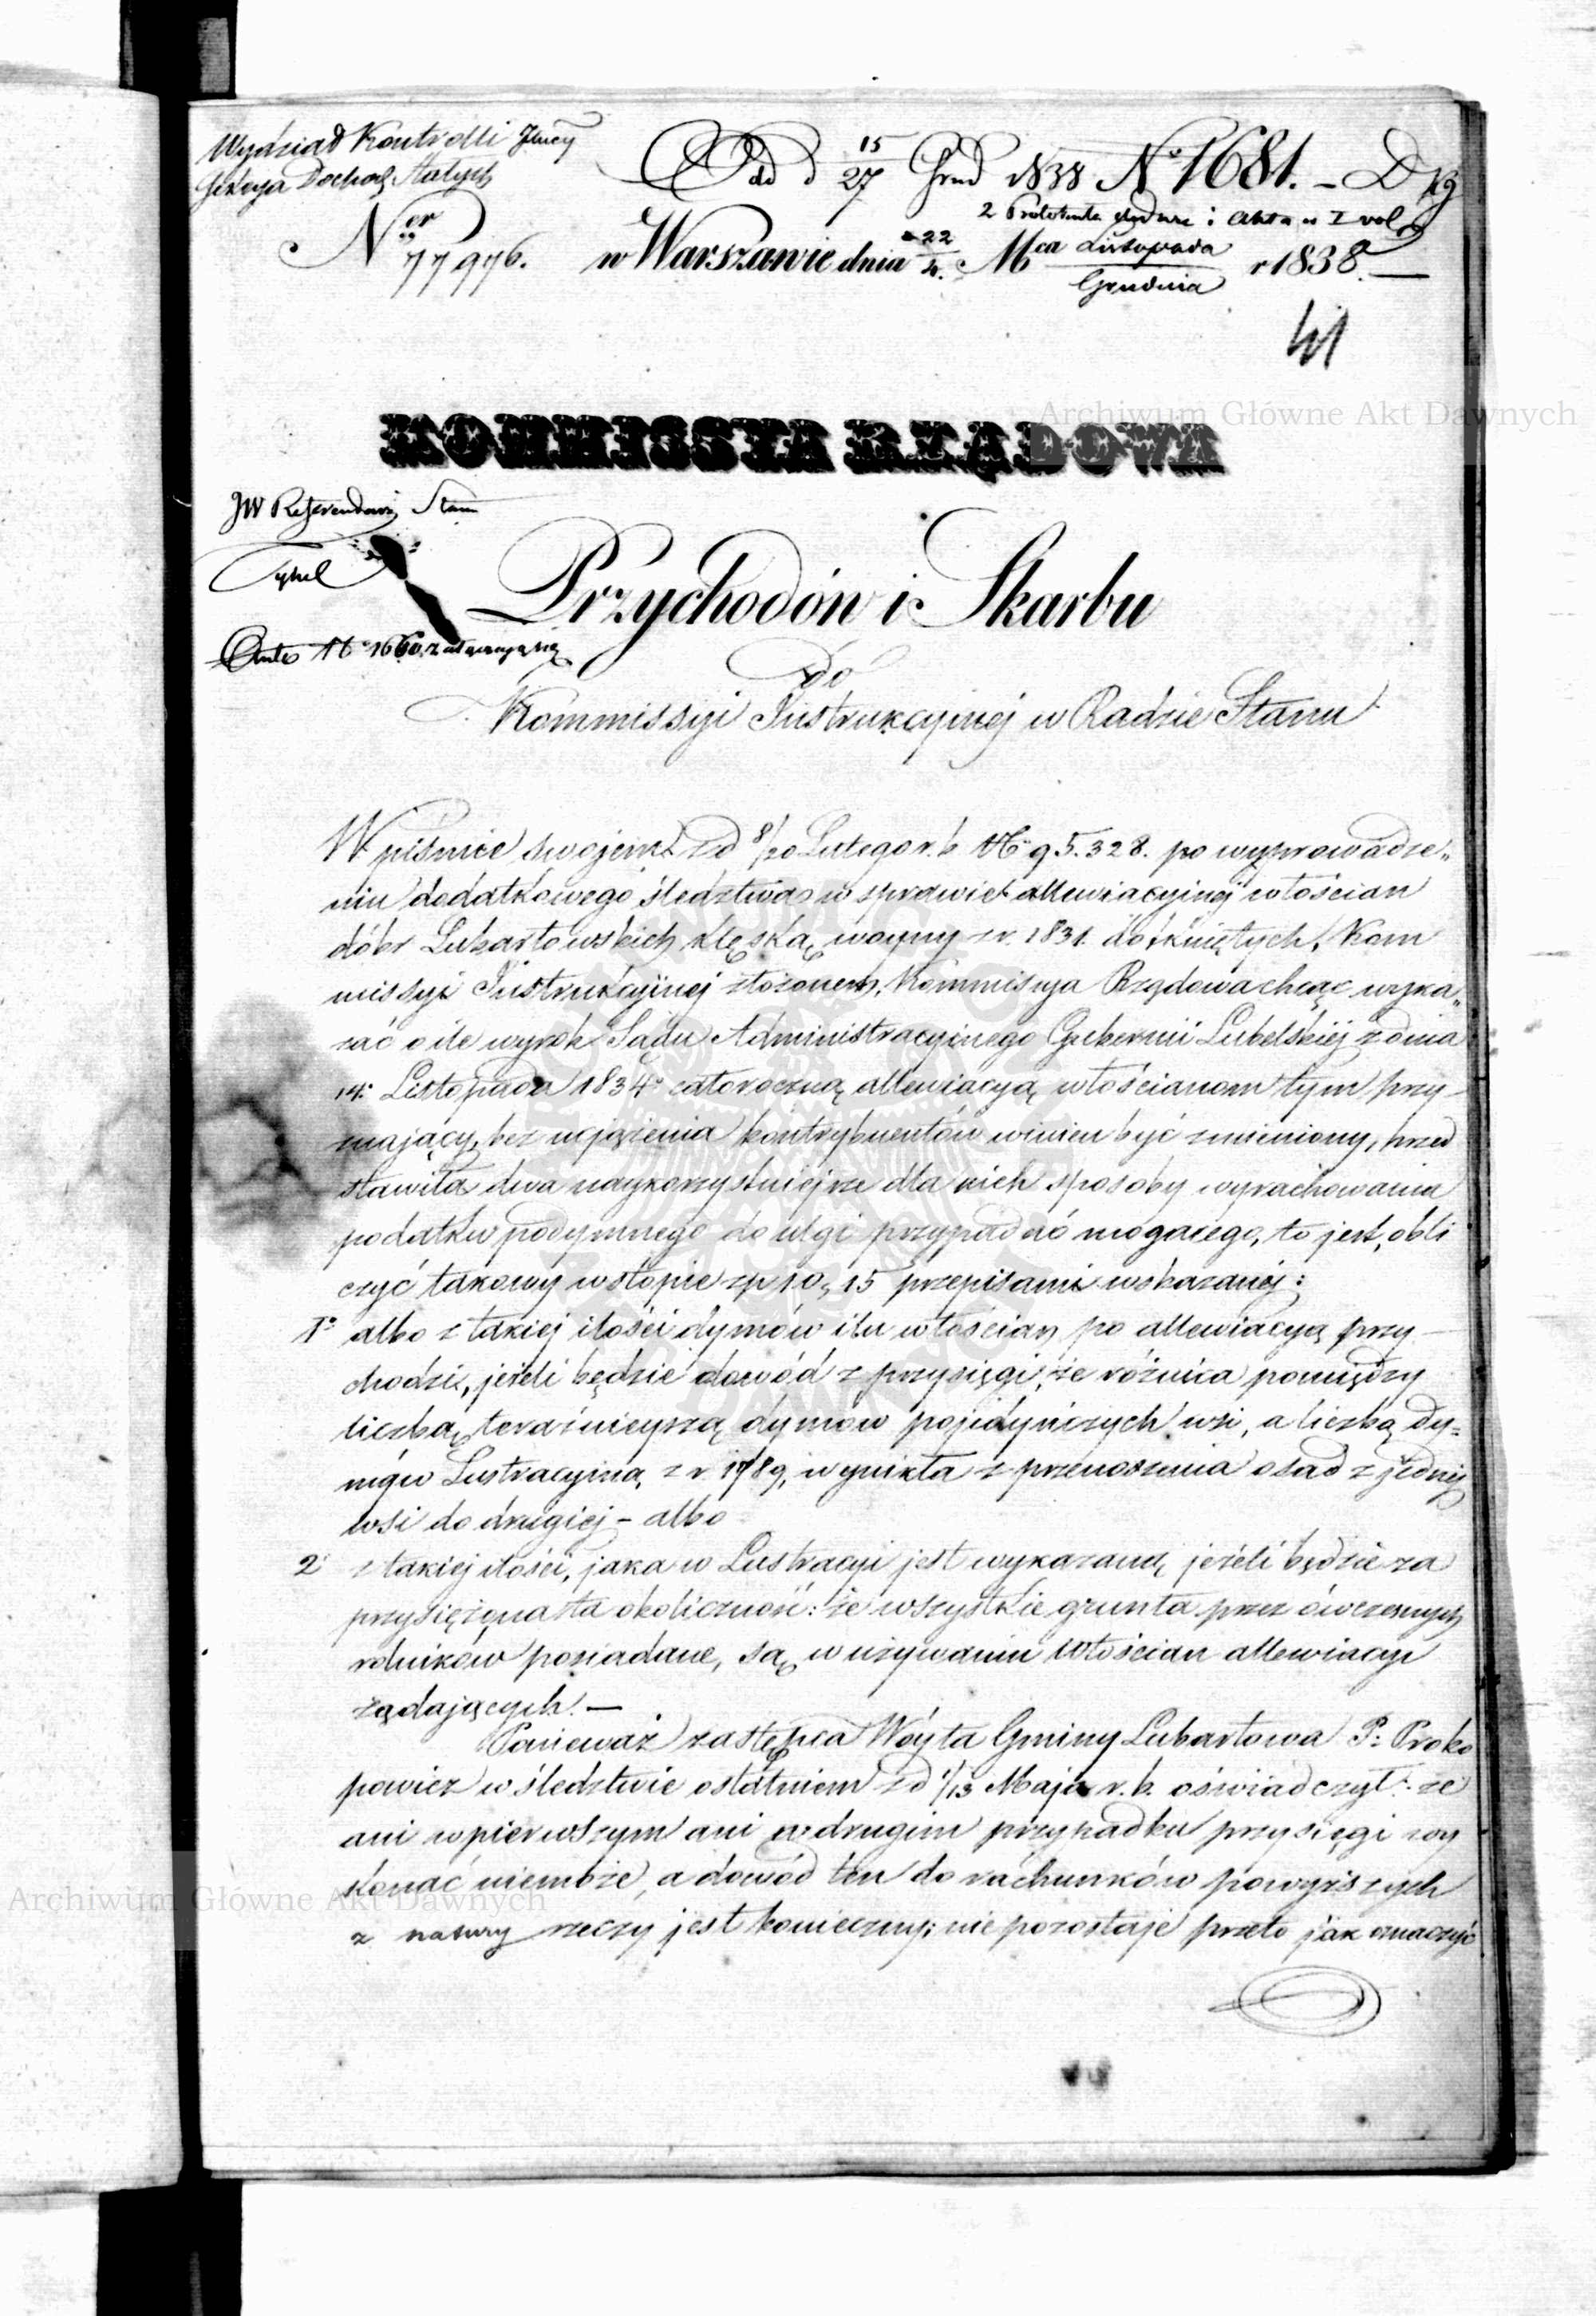 Wydział Kontrolli
Sekcya Doch. Stałych
Od d 15/27 Grud 1838 No 1681. – D
2 Protokuła i Akta w I vol
Ner 77976.
w Warszawie dnia 22/4. Mca Listopada/Grudnia r 1838. —
41
KOMMISSYA RZĄDOWA
Archiwum Główne Akt Dawnych
JW Referendarz Stanu
Przychodów i Skarbu
do
Kommissyi Instrukcyjnej w Radzie Stanu
W piśmie swojem z d 8/20 Lutego r. b. No 95.328. po wyprowadze„
niu dodatkowego śledztwa w sprawie allewiacyjnej włościan
dóbr Lubartowskich klęską woyny z r. 1831. dotkniętych, Kom
missyi Instrukcyjnej złożonem, Kommissya Rządowa chcąc wyka„
zać o ile wyrok Sądu Administracyjnego Gubernii Lubelskiej z dnia
14. Listopada 1834 całoroczną allewiacyą włościanom tym przy-
znający, bez uciążenia kontrybuentów winien być zmieniony, przed
stawiła dwa naykorzystniejsze dla nich sposoby wyrachowania
podatku podymnego do ulgi przypadać mogącego, to jest, obli
czyć takowy w stopie zp 10, 15 przepisami wskazanej:
1o albo z takiej ilości dymów ilu włościan po allewiacyą przy-
chodzi, jeżeli będzie dowód z przysięgi, że różnica pomiędzy
liczbą teraźnieyszą dymów pojedyńczych wsi, a liczbą dy=
mów Lustracyjną z r. 1789, wynikła z przenoszenia osad z jednej
wsi do drugiej – albo
2 z takiej ilości, jaka w Lustracyi jest wykazaną, jeżeli będzie za
przysiężona ta okoliczność: że wszystkie grunta przez ówczesnych
rolników posiadane, są w używaniu włościan allewiacyi
żądających. —
Ponieważ zastępca Wóyta Gminy Lubartowa P: Proko
powicz w śledztwie ostatniem z d 1/13 Maja r. b. oświadczył: że
ani w pierwszym ani w drugim przypadku przysięgi wy
konać niemoże, a dowód ten do rachunków powyższych
z natury rzeczy jest konieczny; nie pozostaje przeto jak oznaczyć
Archiwum Główne Akt Dawnych